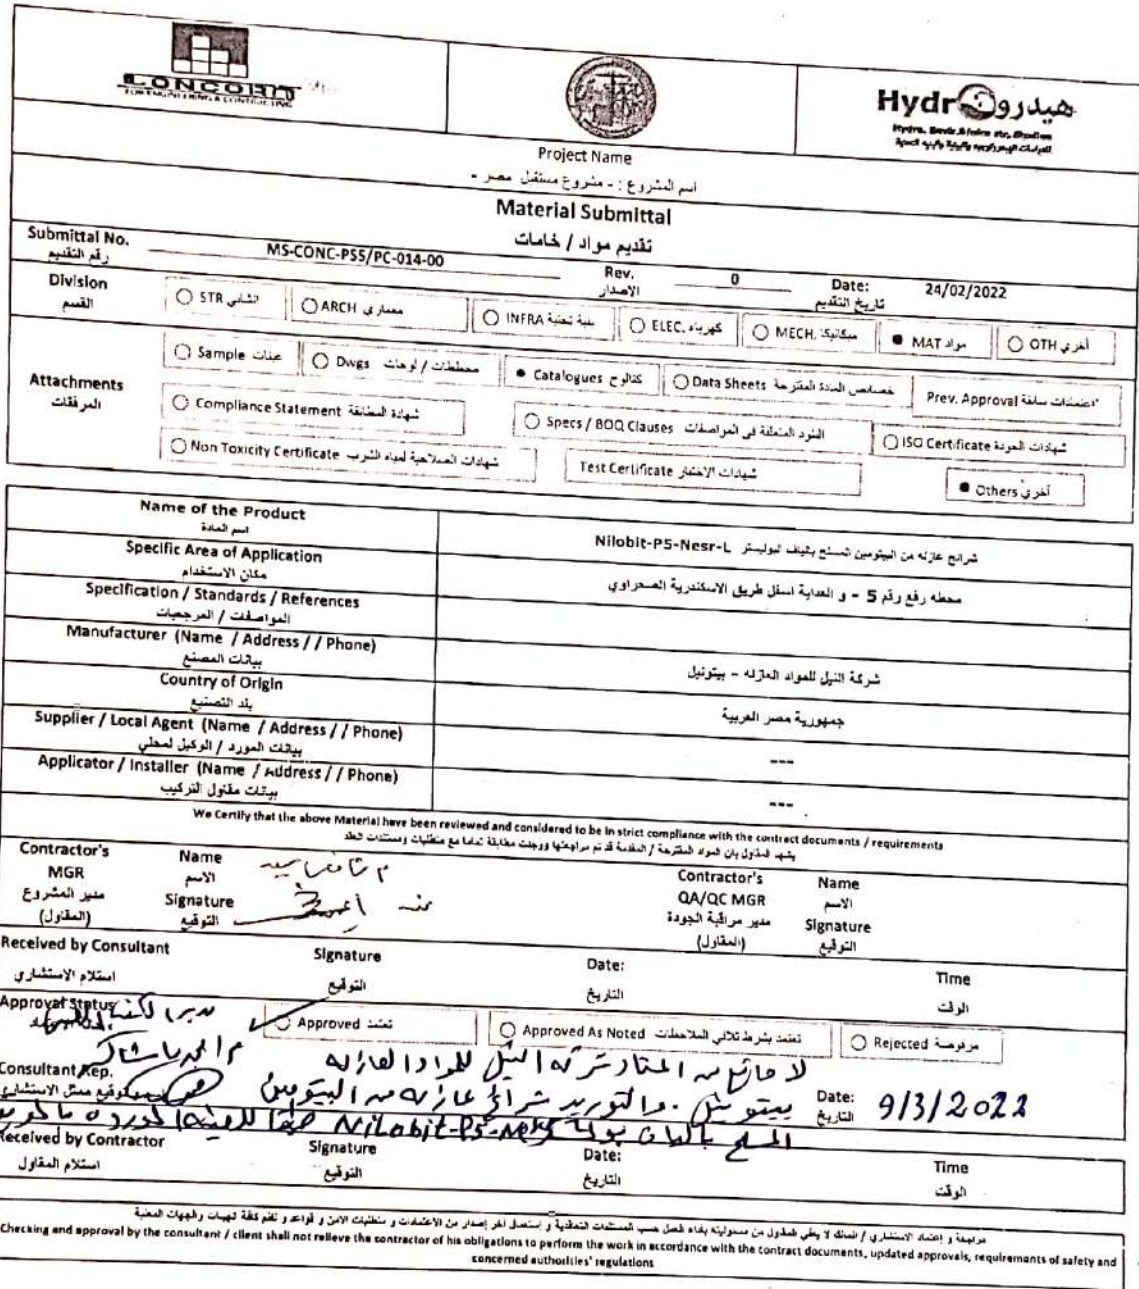 CONCORD
FOR ENGINEERING & CONTRACTING
Hydr هيدرو
Project Name
اسم المشروع : - مشروع مستقبل مصر -
Material Submittal
تقديم مواد / خامات
Submittal No. MS-CONC-PS5/PC-014-00 Rev. 0 Date: 24/02/2022
رقم التقديم الاصدار تاريخ التقديم
Division
القسم
STR انشائي
ARCH معماري
INFRA بنية تحتية
ELEC. كهرباء
MECH. ميكانيكا
MAT مواد
OTH أخري
Attachments
المرفقات
Sample عينات
Dwgs مخططات / لوحات
Catalogues كتالوج
Data Sheets خصائص المادة المقترحة
Prev. Approval اعتمادات سابقة
Compliance Statement شهادة المطابقة
Specs / BOQ Clauses البنود المتعلقة في المواصفات
ISO Certificate شهادات الجودة
Non Toxicity Certificate شهادات الصلاحية لمياه الشرب
Test Certificate شهادات الاختبار
Others أخري
Name of the Product
اسم المادة
شرائح عازله من البيتومين المسلح بالياف البوليستر Nilobit-P5-Nesr-L
Specific Area of Application
مكان الاستخدام
محطه رفع رقم 5 - و العداية اسفل طريق الاسكندرية الصحراوي
Specification / Standards / References
المواصفات / المرجعيات
Manufacturer (Name / Address / / Phone)
بيانات المصنع
شركة النيل للمواد العازله - بيتونيل
Country of Origin
بلد التصنيع
جمهورية مصر العربية
Supplier / Local Agent (Name / Address / / Phone)
بيانات المورد / الوكيل لمحلي
---
Applicator / Installer (Name / Address / / Phone)
بيانات مقاول التركيب
---
We Certify that the above Material have been reviewed and considered to be in strict compliance with the contract documents / requirements
يشهد المقاول بان المواد المقترحة / المقدمة قد تم مراجعتها ووجدت مطابقة تماما مع متطلبات ومستندات العقد
Contractor's MGR
مدير المشروع
(المقاول)
Name
الاسم
Signature
التوقيع
Contractor's QA/QC MGR
مدير مراقبة الجودة
(المقاول)
Name
الاسم
Signature
التوقيع
Received by Consultant Signature Date: Time
استلام الاستشاري التوقيع التاريخ الوقت
Approval Status
Approved تعتمد
Approved As Noted تعتمد بشرط تلافي الملاحظات
Rejected مرفوضة
لا مانع من اعتماد شركه النيل للمواد العازله
Consultant Rep.
بيتونيل . والتوريد شرائح عازله من البيتومين
Date: 9/3/2022
التاريخ
المسلح بالياف Nilobit-P5-Nesr طبقا للعينه الموردة
Received by Contractor Signature Date: Time
استلام المقاول التوقيع التاريخ الوقت
مراجعة و إعتماد الاستشاري / المالك لا يعفي المقاول من مسئوليته بأداء العمل حسب المستندات التعاقدية و إستعمال أخر إصدار من الأعتمادات و متطلبات الامن و قواعد و نظم كافة الهيئات والجهات المعنية
Checking and approval by the consultant / client shall not relieve the contractor of his obligations to perform the work in accordance with the contract documents, updated approvals, requirements of safety and
concerned authorities' regulations